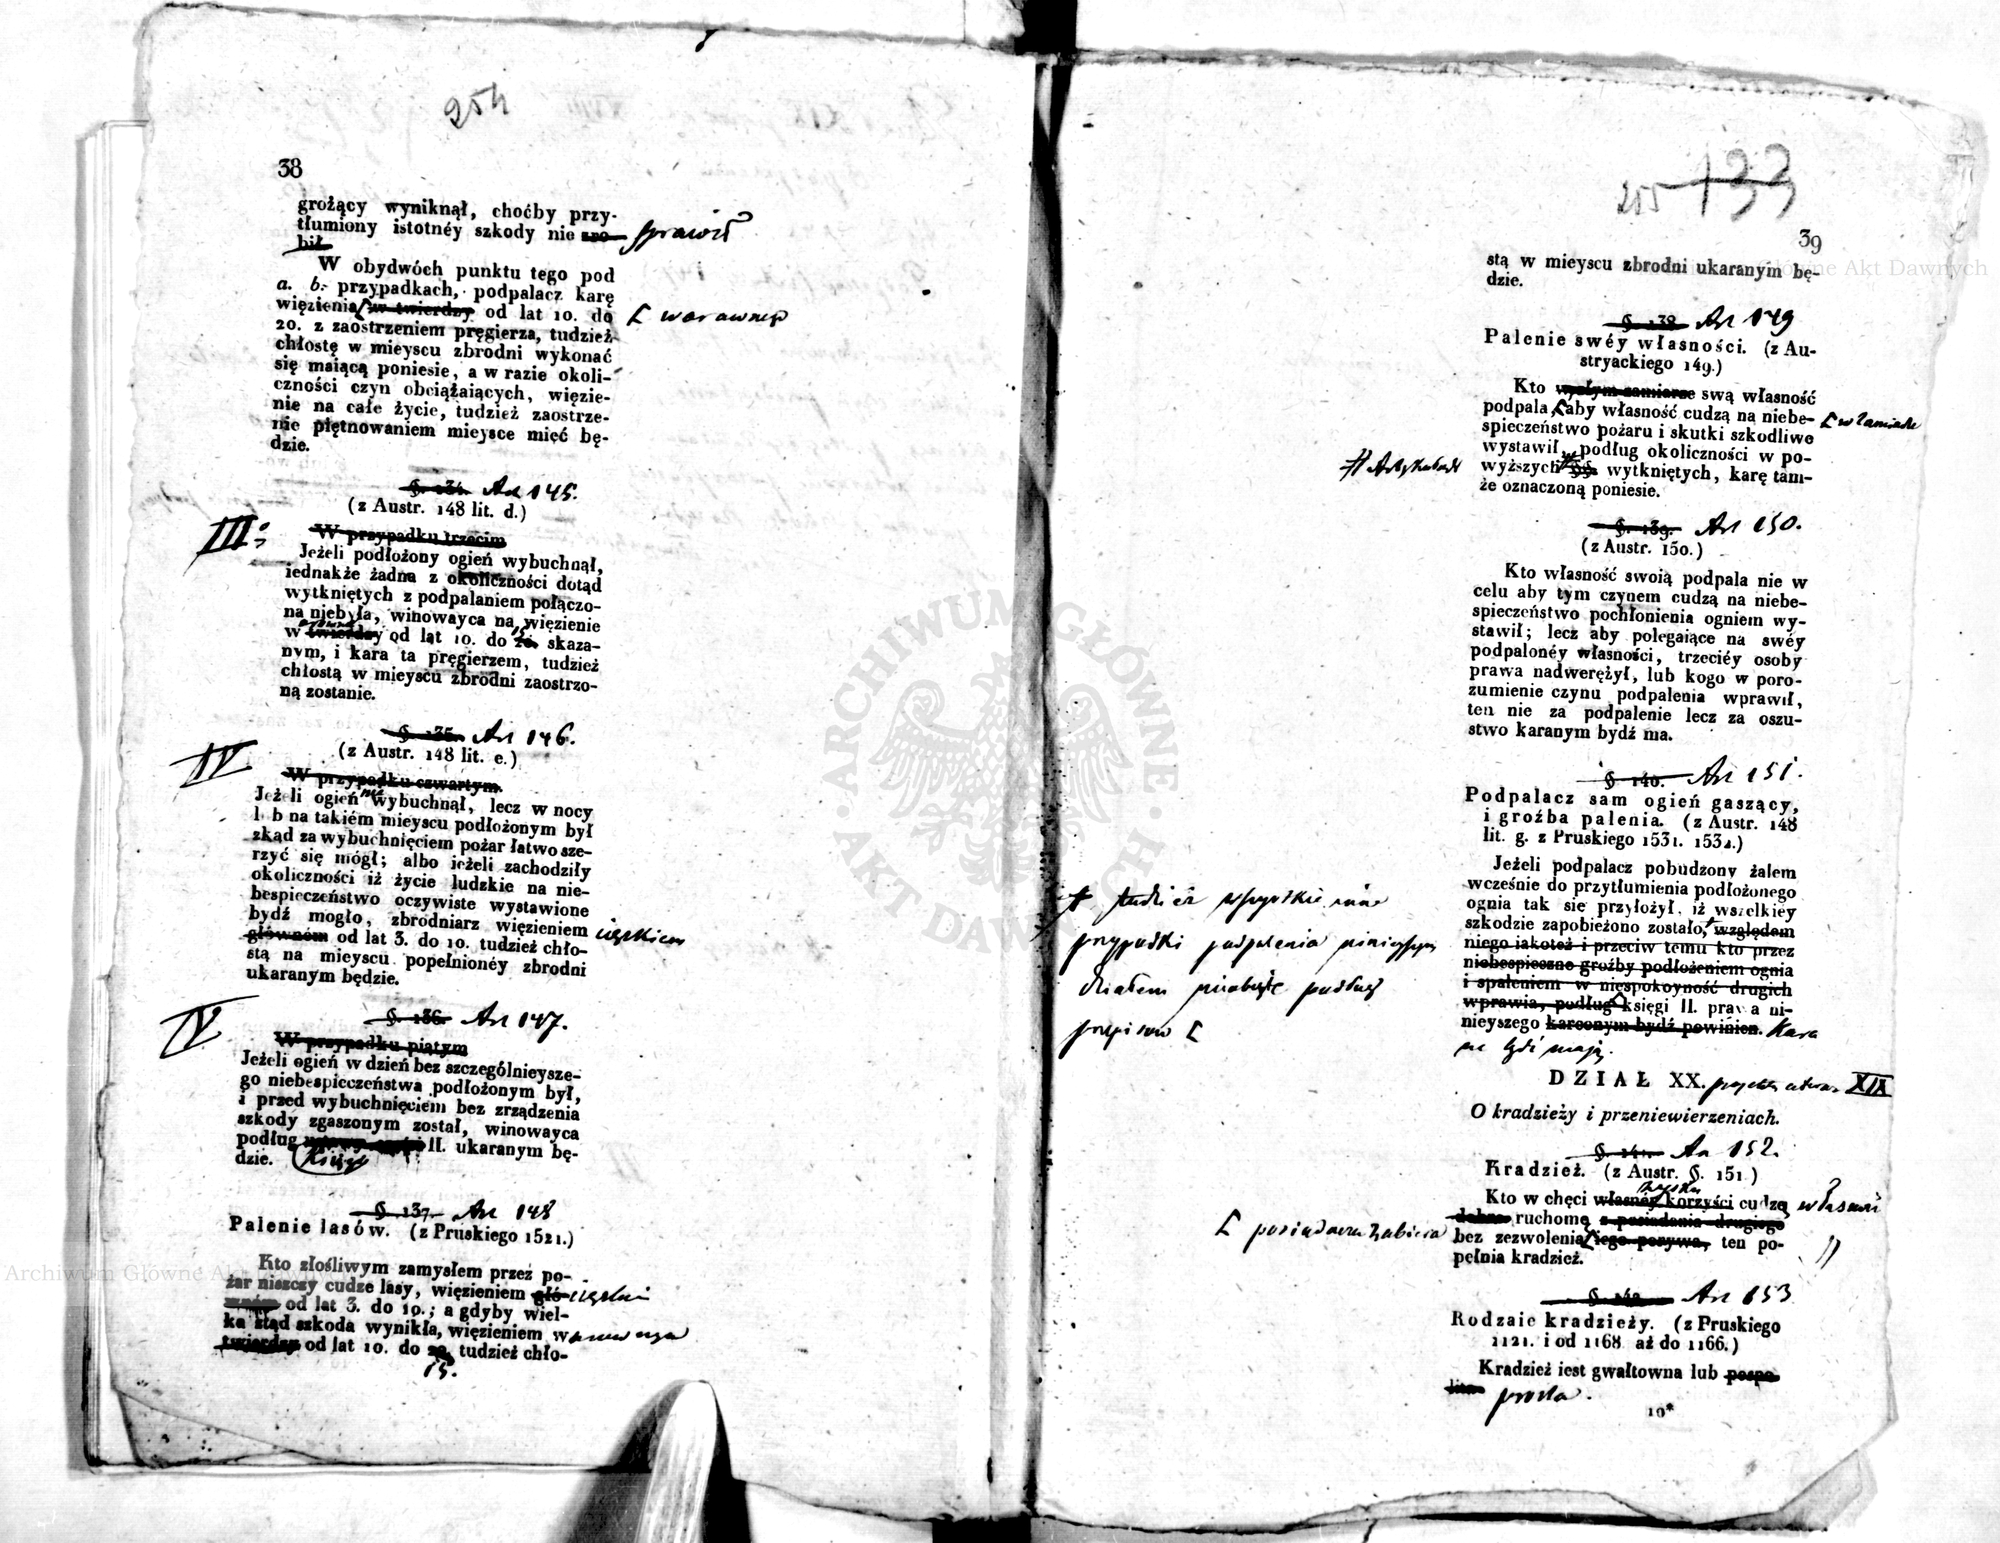 254
38
grożący wyniknął, choćby przy-
tłumiony istotnéy szkody nie zro- sprawił
bił
W obydwóch punktu tego pod
a. b. przypadkach, podpalacz karę
więzienia w twierdzy od lat 10. do warownep
20. z zaostrzeniem pręgierza, tudzież
chłostę w mieyscu zbrodni wykonać
się maiącą poniesie, a w razie okoli-
czności czyn obciążaiących, więzie-
nie na całe życie, tudzież zaostrze-
nie piętnowaniem mieysce mieć bę-
dzie.
§. 134. Art 145.
(z Austr. 148 lit. d.)
III:o W przypadku trzecim
Jeżeli podłożony ogień wybuchnął,
iednakże żadna z okoliczności dotąd
wytkniętych z podpalaniem połączo-
na niebyła, winowayca na więzienie
w twierdzy od lat 10. do 15 20. skaza-
nym, i kara ta pręgierzem, tudzież
chłostą w mieyscu zbrodni zaostrzo-
ną zostanie.
§. 135. Art 146.
(z Austr. 148 lit. e.)
IV W przypadku czwartym.
Jeżeli ogień nie wybuchnął, lecz w nocy
lub na takiém mieyscu podłożonym był
zkąd za wybuchnięciem pożar łatwo sze-
rzyć się mógł; albo ieżeli zachodziły
okoliczności iż życie ludzkie na nie-
bespieczeństwo oczywiste wystawione
bydź mogło, zbrodniarz więzieniem ciężkiem
głównem od lat 3. do 10. tudzież chło-
stą na mieyscu popełnionéy zbrodni
ukaranym będzie.
§. 136. Art 147.
V W przypadku piątym
Jeżeli ogień w dzień bez szczególnieysze-
go niebespieczeństwa podłożonym był,
i przed wybuchnięciem bez zrządzenia
szkody zgaszonym został, winowayca
podług II. ukaranym bę-
dzie. Księgi
§. 137. Art 148
Palenie lasów. (z Pruskiego 1521.)
Kto złośliwym zamysłem przez po-
żar niszczy cudze lasy, więzieniem głó- ciężkim
wném od lat 3. do 10.; a gdyby wiel-
ka ztąd szkoda wynikła, więzieniem w
twierdzy od lat 10. do 20. tudzież chło-
15.
205 133
39
stą w mieyscu zbrodni ukaranym bę-
dzie.
§. 138. Art 149
Palenie swéy własności. (z Au-
stryackiego 149.)
Kto w złym zamiarze swą własność
podpala aby własność cudzą na niebe- w zamiarze
spieczeństwo pożaru i skutki szkodliwe
wystawił, podług okoliczności w po-
# Artykułach wyższych # §§. wytkniętych, karę tam-
że oznaczoną poniesie.
§. 139. Art 150.
(z Austr. 150.)
Kto własność swoią podpala nie w
celu aby tym czynem cudzą na niebe-
spieczeństwo pochłonienia ogniem wy-
stawił; lecz aby polegaiące na swéy
podpalonéy własności, trzeciéy osoby
prawa nadwerężył, lub kogo w poro-
zumienie czynu podpalenia wprawił,
ten nie za podpalenie lecz za oszu-
stwo karanym bydź ma.
§ 140. Art 151.
Podpalacz sam ogień gaszący,
i groźba palenia. (z Austr. 148
lit. g. z Pruskiego 1531. 1532.)
Jeżeli podpalacz pobudzony żalem
wcześnie do przytłumienia podłożonego
ognia tak się przyłożył, iż wszelkiey
szkodzie zapobieżono zostało, względem
niego iakoteż i przeciw temu kto przez
niebespieczne groźby podłożeniem ognia
i spaleniem w niespokoyność drugich
wprawia, podług księgi II. prawa ni-
nieyszego karconym bydź powinien. Kara
ne bydź mają.
tudzież wszystkie inne
przypadki podpalenia ninieyszym
działem nieobjęte podług
przepisów
DZIAŁ XX. XIX
O kradzieży i przeniewierzeniach.
§. 141. Art 152.
Kradzież. (z Austr. §. 151.)
Kto w chęci własnéy korzyści zysku cudzą własność
dobro ruchomę z posiadania drugiego
posiadacza zabiera bez zezwolenia iego porywa, ten po-
pełnia kradzież.
§. 142. Art 153
Rodzaie kradzieży. (z Pruskiego
1121. i od 1168 aż do 1166.)
Kradzież iest gwałtowna lub pospo-
lita prosta.
10*
ARCHIWUM GŁÓWNE AKT DAWNYCH
Archiwum Główne Akt Dawnych
Główne Akt Dawnych